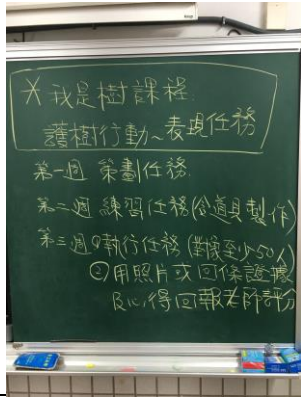 *我是樹課程
護樹行動~表現任務
第一週 策劃任務
第二週 練習任務(含道具製作)
第三週①執行任務(對像至少50人)
②用照片或回條證據
及心得回報老師評分